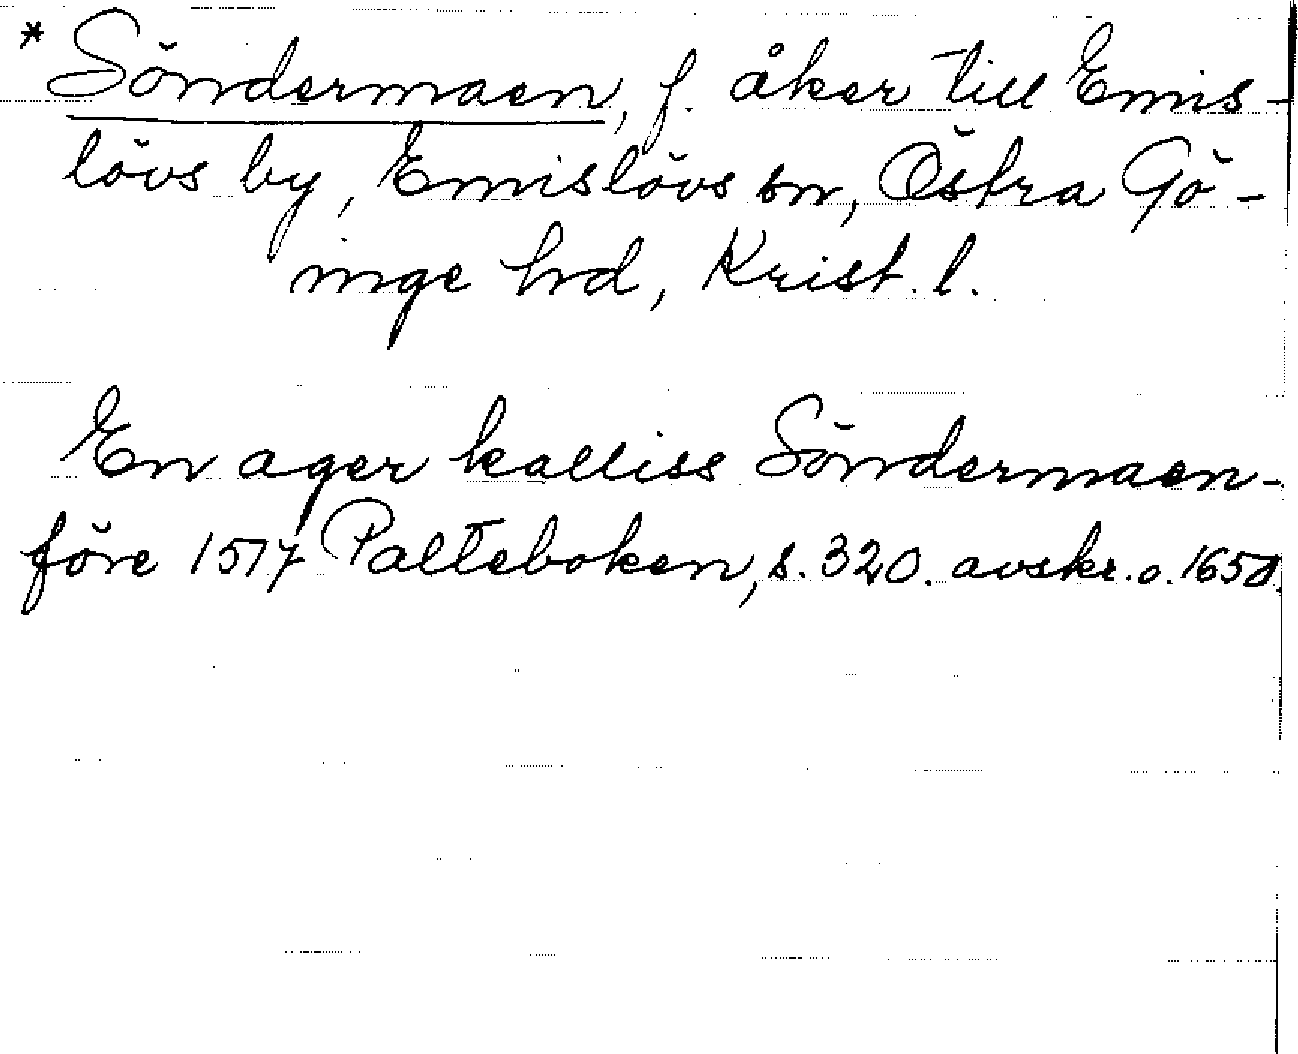 * Söndermaen, f. åker till Emis-
lövs by, Emislövs sn, Östra Gö-
inge hd, Krist. l.
En ager kalliss Söndermaen-
före 1517 Palteboken, s. 320. avskr. o. 1650.